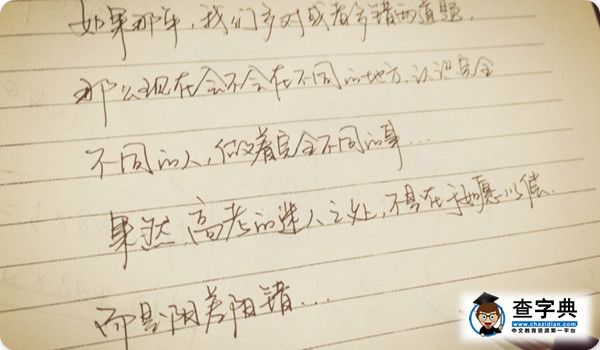 如果那年，我们多对或者多错两道题，
那么现在会不会在不同的地方，认识完全
不同的人，做着完全不同的事…
果然，高考的迷人之处，不是在于如愿以偿，
而是阴差阳错…
查字典
www.chazidian.com
中文教育资源第一平台